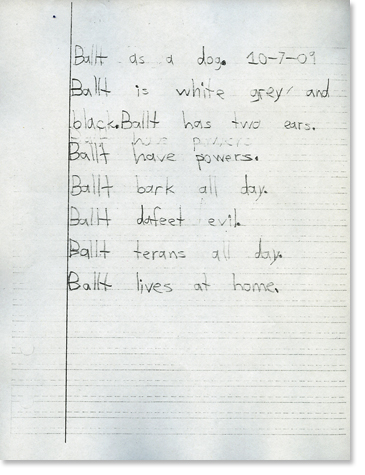 Ballt as a dog. 10-7-09
Ballt is white grey and
black.Ballt has two ears.
Ballt have powers.
Ballt bark all day.
Ballt dafeet evil.
Ballt terans all day.
Ballt lives at home.